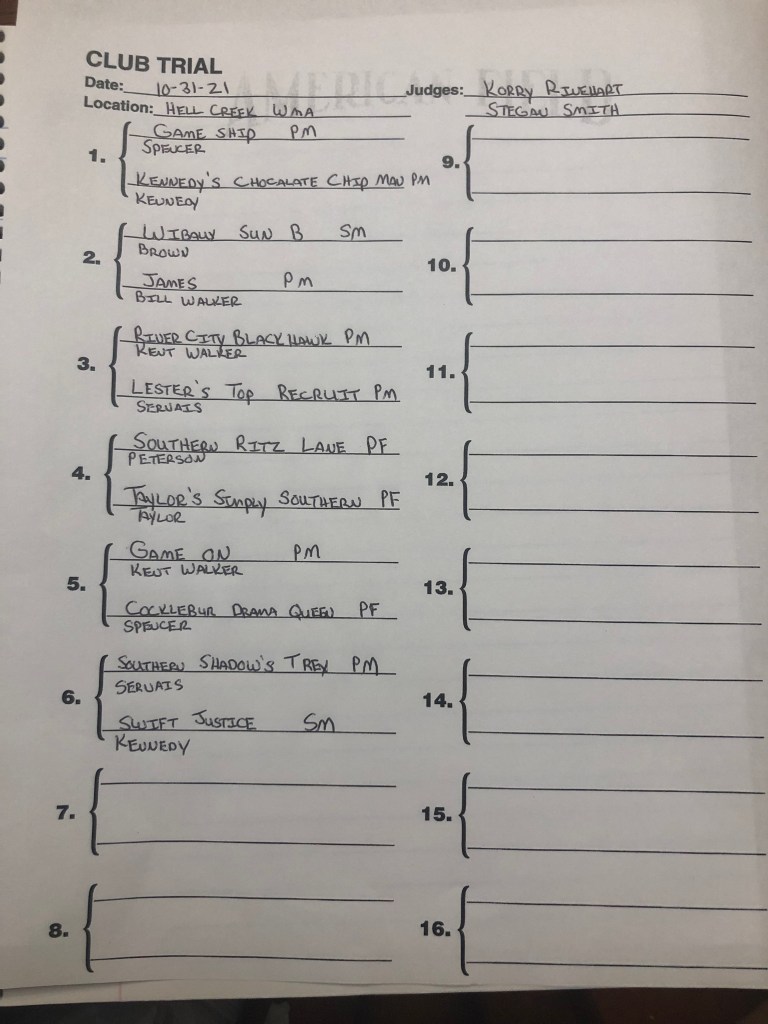 CLUB TRIAL
Date: 10-31-21
Location: HELL CREEK WMA
Judges: KORRY RINEHART
STEGAN SMITH
1. GAME SHIP PM
SPENCER
KENNEDY'S CHOCALATE CHIP MAN PM
KENNEDY
2. SUN B SM
BROWN
JAMES PM
BILL WALKER
3. RIVER CITY BLACKHAWK PM
KENT WALKER
LESTER'S TOP RECRUIT PM
SERVAIS
4. SOUTHERN RITZ LANE PF
PETERSON
TAYLOR'S SIMPLY SOUTHERN PF
TAYLOR
5. GAME ON PM
KENT WALKER
COCKLEBUR DRAMA QUEEN PF
SPENCER
6. SOUTHERN SHADOW'S TREY PM
SERVAIS
SWIFT JUSTICE SM
KENNEDY
7.
8.
9.
10.
11.
12.
13.
14.
15.
16.
AMERICAN FIELD